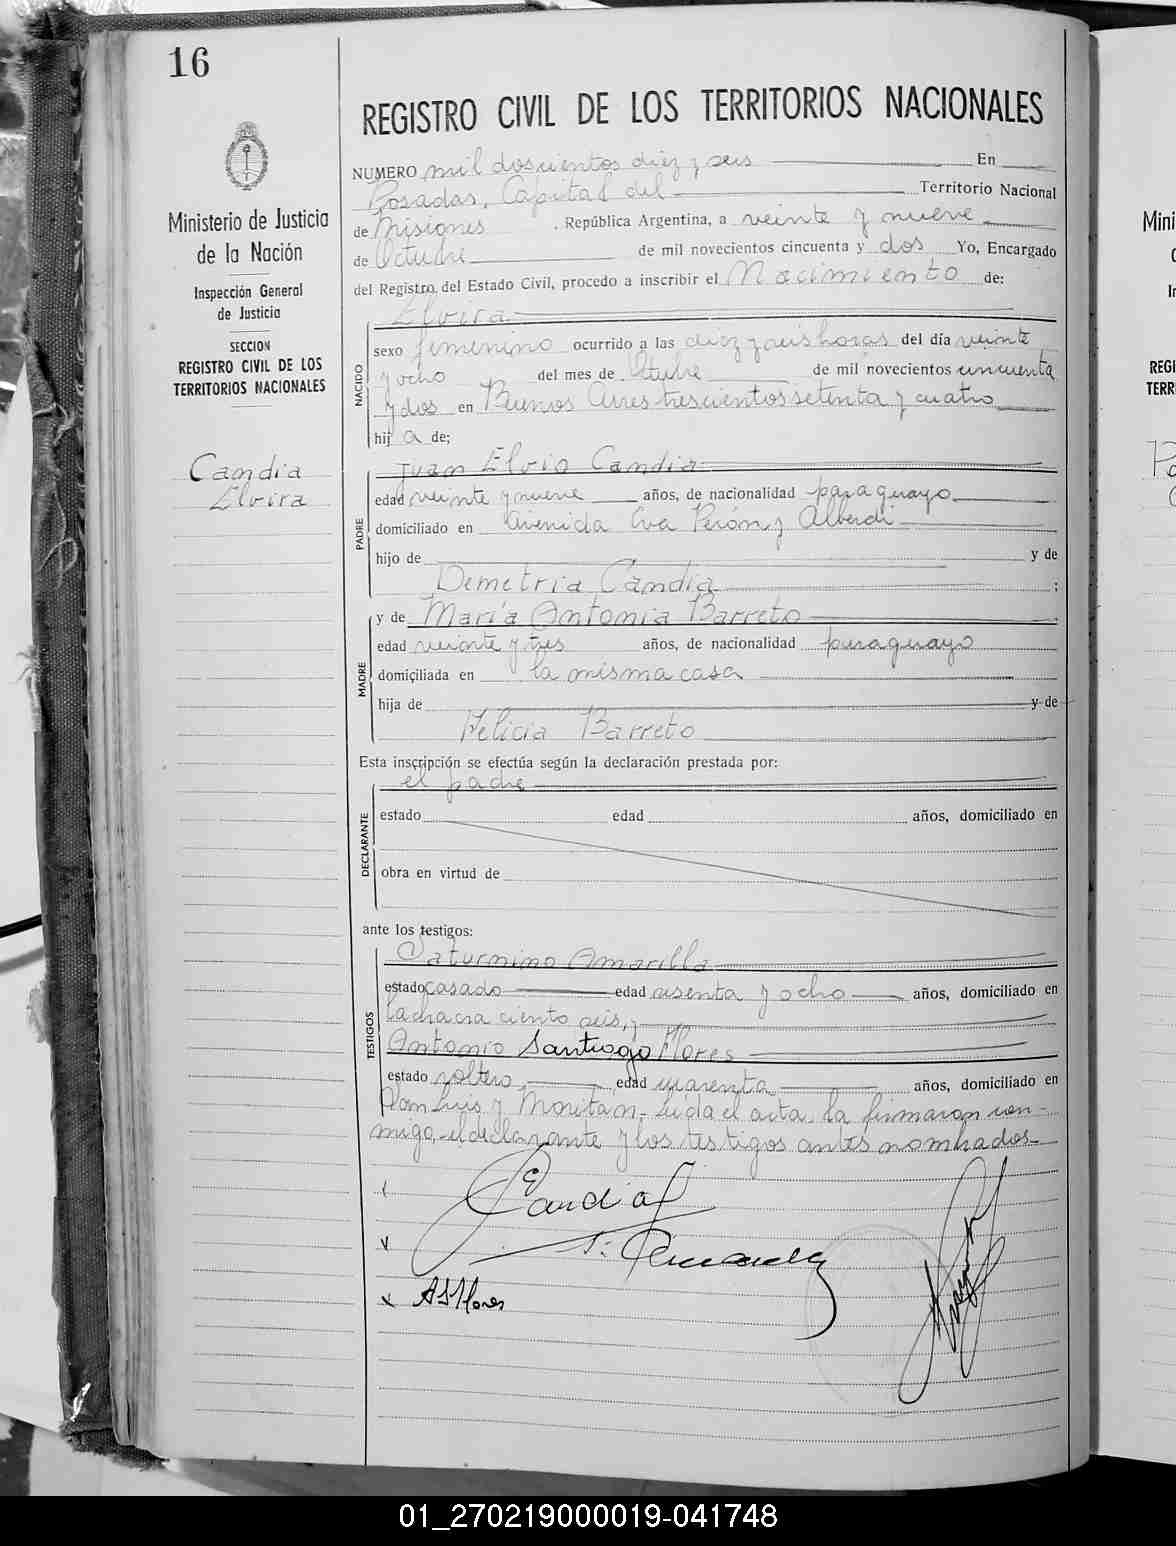 16
REGISTRO CIVIL DE LOS TERRITORIOS NACIONALES
Ministerio de Justicia
de la Nación
Inspección General
de Justicia
SECCION
REGISTRO CIVIL DE LOS
TERRITORIOS NACIONALES
Candia
Elvira
NUMERO mil doscientos diez y seis En
Posadas, Capital del Territorio Nacional
de Misiones. República Argentina, a veinte y nueve
de Octubre de mil novecientos cincuenta y dos Yo, Encargado
del Registro del Estado Civil, procedo a inscribir el Nacimiento de:
Elvira
NACIDO
sexo femenino ocurrido a las diez y seis horas del día veinte
y ocho del mes de Octubre de mil novecientos cincuenta
y dos en Buenos Aires trescientos setenta y cuatro
hij a de;
PADRE
Juan Elvio Candia
edad veinte y nueve años, de nacionalidad paraguayo
domiciliado en Avenida Eva Perón y Alberdi
hijo de y de
Demetria Candia ;
MADRE
y de María Antonia Barreto
edad veinte y tres años, de nacionalidad paraguayo
domiciliada en la misma casa
hija de y de
Felicia Barreto
Esta inscripción se efectúa según la declaración prestada por:
el padre
DECLARANTE
estado edad años, domiciliado en
obra en virtud de
ante los testigos:
TESTIGOS
Saturnino Amarilla
estado casado edad sesenta y ocho años, domiciliado en
la chacra ciento seis, y
Antonio Santiago Flores
estado soltero, edad cuarenta años, domiciliado en
San Luis y Moritán.- Leída el acta, la firmaron con-
migo, el declarante y los testigos antes nombrados.-
Candia
ASFlores
Mini
REGI
TERR
01_270219000019-041748